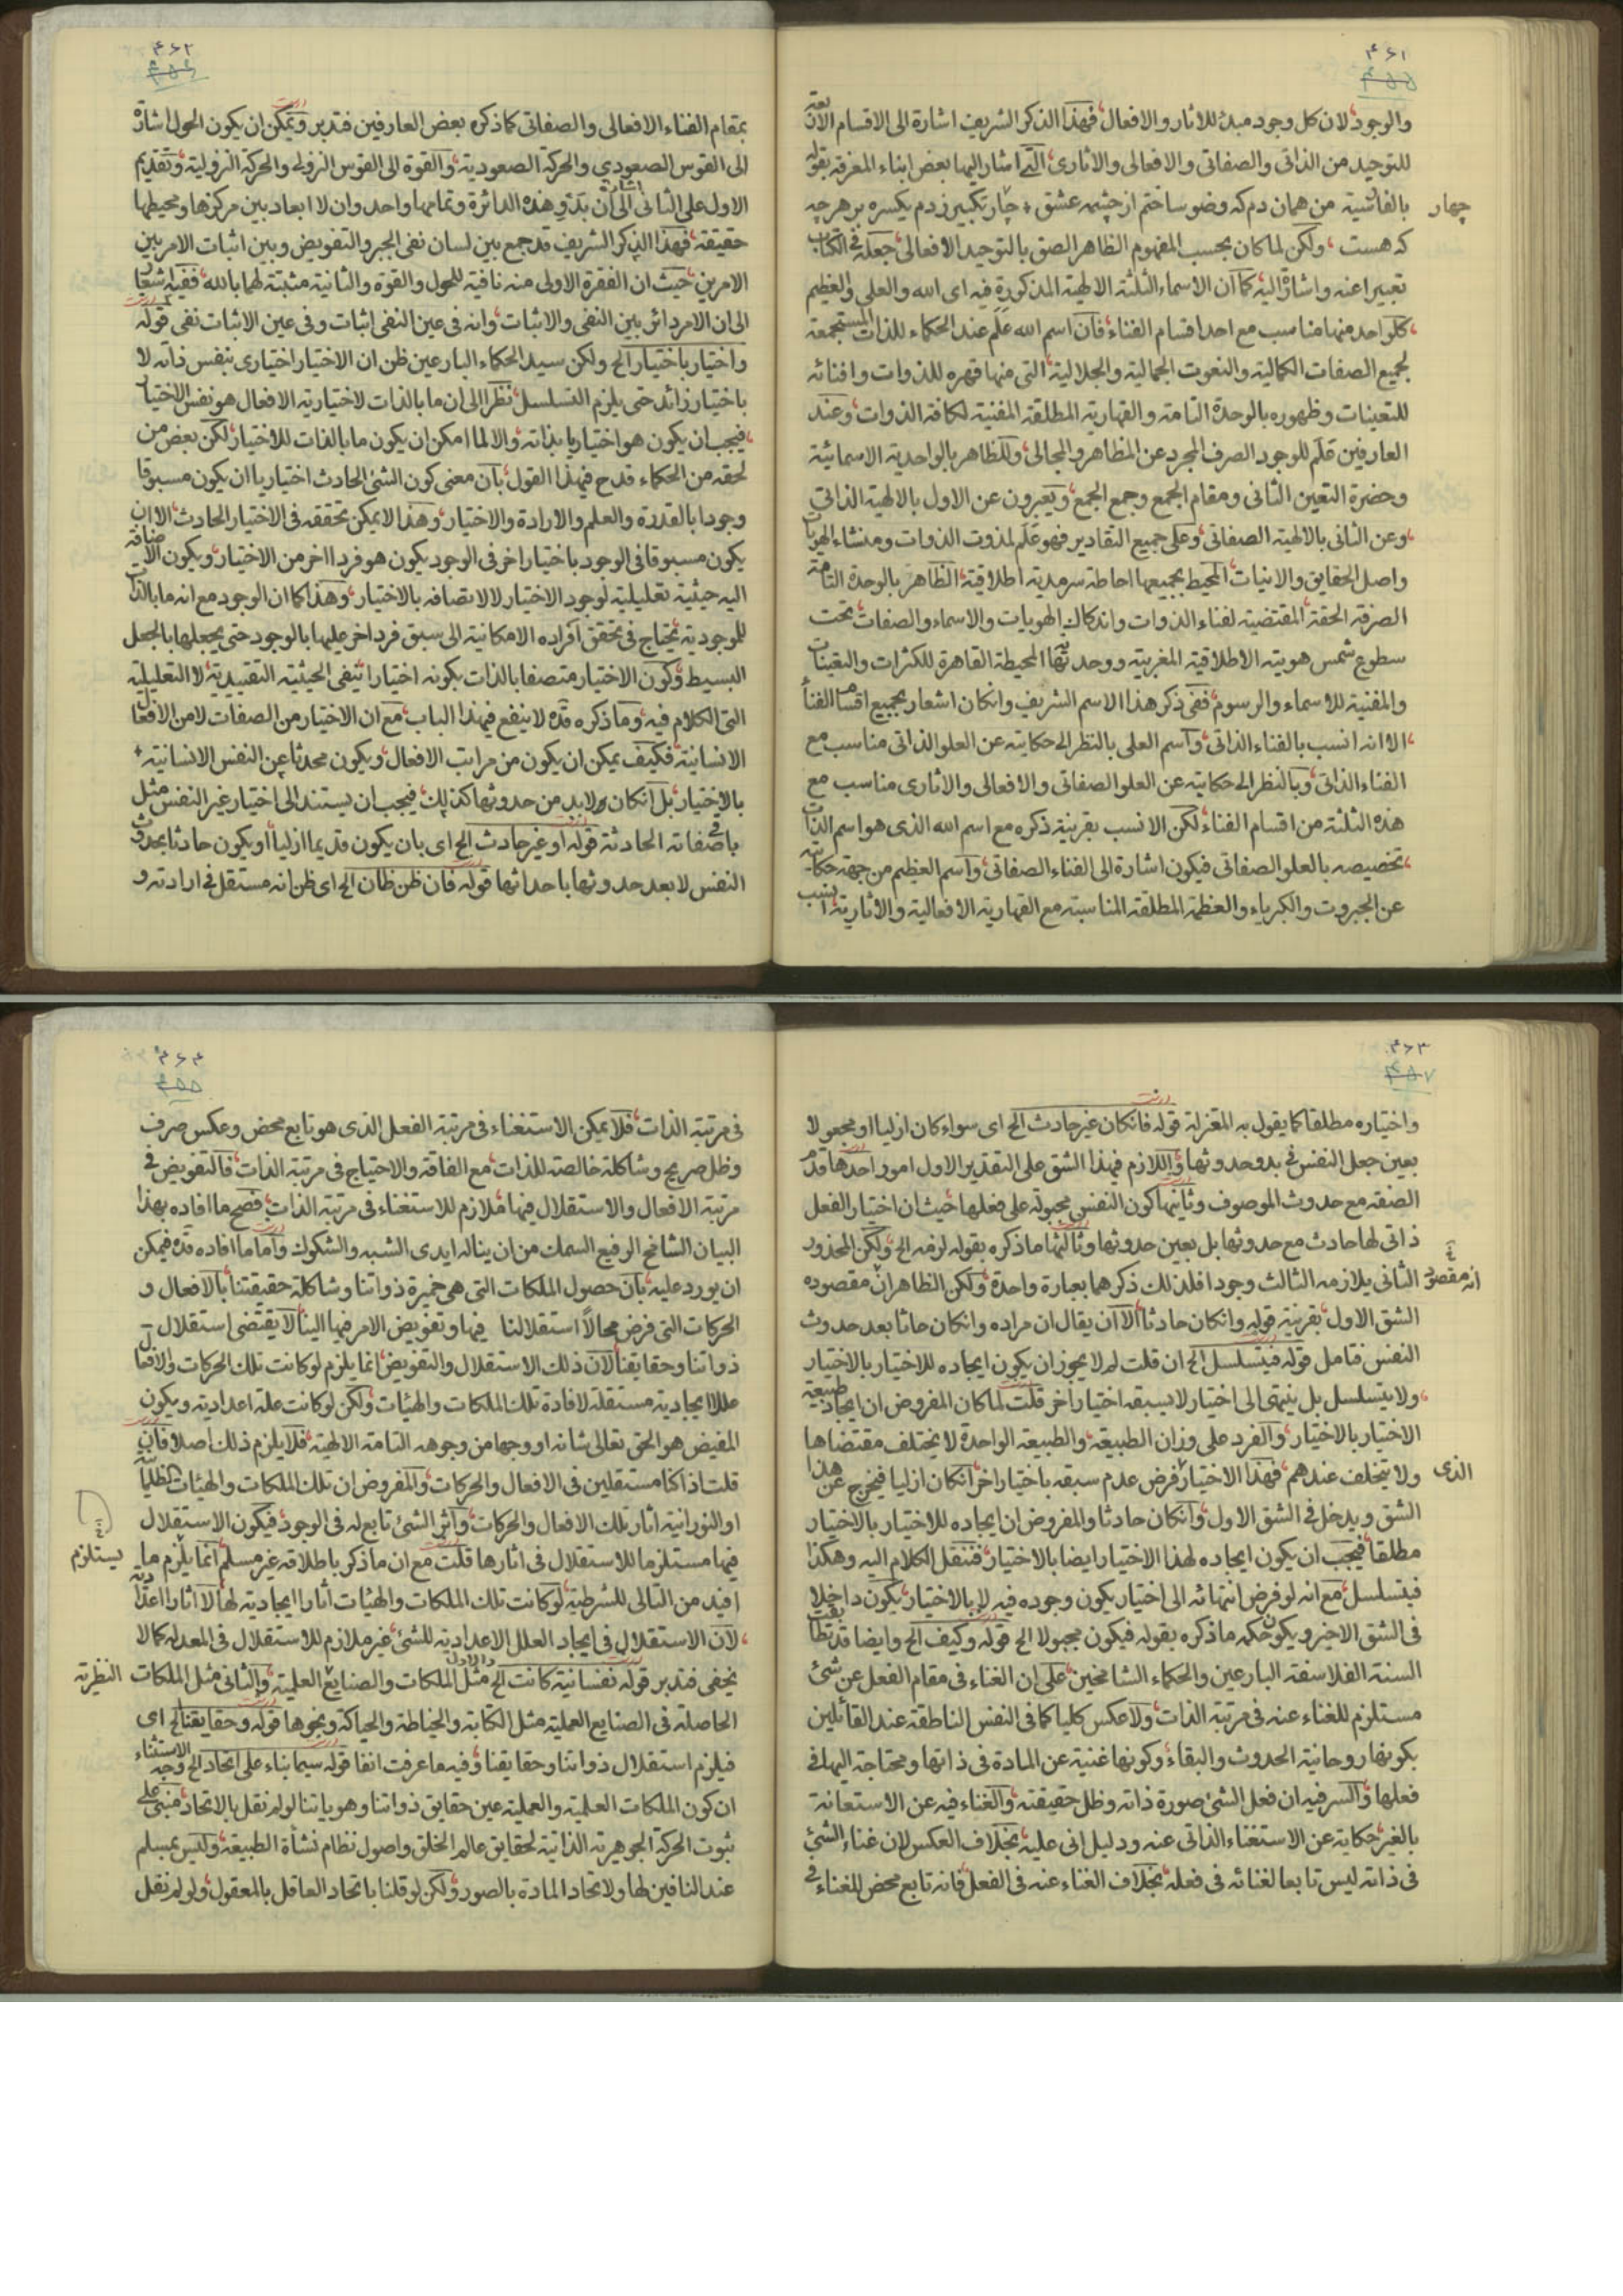 ۴۶۱
۴۵۵
والوجود لان کل وجود مبدء للاثار والافعال فهذا الذکر الشریف اشارة الی الاقسام الاربعة
للتوحید من الذاتی والصفاتی والافعالی والاثاری التی اشار الیها بعض ابناء المعرفة بقوله
بالفارسیة من همان دم که وضو ساختم از چشمه عشق چار تکبیر زدم یکسره بر هر چه
چهار
که هست ولکن لما کان بحسب المفهوم الظاهر الصق بالتوحید الافعالی جعله فی الکتاب
تعبیرا عنه واشارة الیه کما ان الاسماء الثلثة الالهیة المذکورة فیه ای الله والعلی والعظیم
کل واحد منها مناسب مع احد اقسام الفناء فان اسم الله علم عند الحکماء للذات المستجمعة
لجمیع الصفات الکمالیة والنعوت الجمالیة والجلالیة التی منها قهره للذوات وافنائه
للتعینات وظهوره بالوحدة التامة والقهاریة المطلقة المفنیة لکافة الذوات وعند
العارفین علم للوجود الصرف المجرد عن المظاهر والمجالی وللظاهر بالواحدیة الاسمائیة
وحضرة التعین الثانی ومقام الجمع وجمع الجمع ویعبرون عن الاول بالالهیة الذاتی
وعن الثانی بالالهیة الصفاتی وعلی جمیع التقادیر فهو علم لمذوت الذوات ومنشاء الهویات
واصل الحقایق والانیات المحیط بجمیعها احاطة سرمدیة اطلاقیة الظاهر بالوحدة التامة
الصرفة الحقة المقتضیة لفناء الذوات واندکاک الهویات والاسماء والصفات تحت
سطوع شمس هویته الاطلاقیة المغربیة ووحدتها المحیطة القاهرة للکثرات والتعینات
والمفنیة للاسماء والرسوم ففی ذکر هذا الاسم الشریف وانکان اشعار بجمیع اقسام الفناء
الا انه انسب بالفناء الذاتی واسم العلی بالنظر الی حکایته عن العلو الذاتی مناسب مع
الفناء الذاتی وبالنظر الی حکایته عن العلو الصفاتی والافعالی والاثاری مناسب مع
هذه الثلثة من اقسام الفناء لکن الانسب بقرینة ذکره مع اسم الله الذی هو اسم الذات
تخصیصه بالعلو الصفاتی فیکون اشارة الی الفناء الصفاتی واسم العظیم من جهة حکایته
عن الجبروت والکبریاء والعظمة المطلقة المناسبة مع القهاریة الافعالیة والاثاریة انسب
۴۶۲
۴۵۶
بمقام الفناء الافعالی والصفاتی کما ذکره بعض العارفین فتدبر ویمکن ان یکون الحول اشارة
الی القوس الصعودی والحرکة الصعودیة والقوة الی القوس النزولی والحرکة النزولیة وتقدیم
الاول علی الثانی اشارة الی ان بدو هذه الدائرة وتمامها واحد وان لا ابعاد بین مرکزها ومحیطها
حقیقة فهذا الذکر الشریف قد جمع بین لسان نفی الجبر والتفویض وبین اثبات الامر بین
الامرین حیث ان الفقرة الاولی منه نافیة للحول والقوة والثانیة مثبتة لهما بالله ففیه اشعار
الی ان الامر دائر بین النفی والاثبات وانه فی عین النفی اثبات وفی عین الاثبات نفی قوله
واختیار باختیار الخ ولکن سید الحکماء البارعین ظن ان الاختیار اختیاری بنفس ذاته لا
باختیار زائد حتی یلزم التسلسل نظرا الی ان ما بالذات لاختیاریة الافعال هو نفس الاختیار
فیجب ان یکون هو اختیاریا بذاته والا لما امکن ان یکون ما بالذات للاختیار لکن بعض من
لحقه من الحکماء قدح فیهذا القول بان معنی کون الشئ الحادث اختیاریا ان یکون مسبوقا
وجودا بالقدرة والعلم والارادة والاختیار وهذا لا یمکن تحققه فی الاختیار الحادث الا ان
یکون مسبوقا فی الوجود باختیار اخر فی الوجود یکون هو فردا اخر من الاختیار ویکون الاضافة
الیه حیثیة تعلیلیة لوجود الاختیار لا لاتصافه بالاختیار وهذا کما ان الوجود مع انه ما بالذات
للموجودیة یحتاج فی تحقق افراده الامکانیة الی سبق فرد اخر علیها بالوجود حتی یجعلها بالجعل
البسیط وکون الاختیار متصفا بالذات بکونه اختیارا ینفی الحیثیة التقییدیة لا التعلیلیة
التی الکلام فیه وما ذکره قده لا ینفع فیهذا الباب مع ان الاختیار من الصفات لا من الافعال
الانسانیة فکیف یمکن ان یکون من مراتب الافعال ویکون محدثا عن النفس الانسانیة
بالاختیار بل انکان ولابد من حدوثها کذلک فیجب ان یستند الی اختیار غیر النفس مثل
باقی صفاته الحادثة قوله او غیر حادث الخ ای بان یکون قدیما ازلیا او یکون حادثا بحدوث
النفس لا بعد حدوثها باحداثها قوله فان ظن ظان الخ ای ظن انه مستقل فی ارادته و
۴۶۳
۴۵۷
واختیاره مطلقا کما یقول به المعتزلة قوله فانکان غیر حادث الخ ای سواء کان ازلیا او مجعولا
بعین جعل النفس فی بدو حدوثها واللازم فیهذا الشق علی التقدیر الاول امور احدها قدم
الصفة مع حدوث الموصوف وثانیها کون النفس مجبولة علی فعلها حیث ان اختیار الفعل
ذاتی لها حادث مع حدوثها بل بعین حدوثها وثالثها ما ذکره بقوله لزمه الخ ولکن المحذور
الثانی یلازمه الثالث وجودا فلذلک ذکرهما بعبارة واحدة ولکن الظاهر ان مقصوده
انه مقصود
الشق الاول بقرینة قوله وانکان حادثا الا ان یقال ان مراده وانکان حادثا بعد حدوث
النفس فتامل قوله فیتسلسل الخ ان قلت لم لا یجوز ان یکون ایجاده للاختیار بالاختیار
ولا یتسلسل بل ینتهی الی اختیار لا یسبقه اختیار اخر قلت لما کان المفروض ان ایجاد طبیعة
الاختیار بالاختیار والفرد علی وزان الطبیعة والطبیعة الواحدة لا یختلف مقتضاها
ولا یتخلف عندهم فهذا الاختیار فرض عدم سبقه باختیار اخر انکان ازلیا فیخرج عن هذا
الذی
الشق ویدخل فی الشق الاول وانکان حادثا والمفروض ان ایجاده للاختیار بالاختیار
مطلقا فیجب ان یکون ایجاده لهذا الاختیار ایضا بالاختیار فننقل الکلام الیه وهکذا
فیتسلسل مع انه لو فرض انتهائه الی اختیار یکون وجوده فیه لا بالاختیار یکون داخلا
فی الشق الاخیر ویکون حکمه ما ذکره بقوله فیکون مجبولا الخ قوله وکیف الخ وایضا قد تطابقت
السنة الفلاسفة البارعین والحکماء الشامخین علی ان الغناء فی مقام الفعل عن شئ
مستلزم للغناء عنه فی مرتبة الذات ولا عکس کلیا کما فی النفس الناطقة عند القائلین
بکونها روحانیة الحدوث والبقاء وکونها غنیة عن المادة فی ذاتها ومحتاجة الیها فی
فعلها والسر فیه ان فعل الشئ صورة ذاته وظل حقیقته والغناء فیه عن الاستعانة
بالغیر حکایة عن الاستغناء الذاتی عنه ودلیل انی علیه بخلاف العکس لان غناء الشئ
فی ذاته لیس تابعا لغنائه فی فعله بخلاف الغناء عنه فی الفعل فانه تابع محض للغناء فی
۴۶۴
۴۵۵
فی مرتبة الذات فلا یمکن الاستغناء فی مرتبة الفعل الذی هو تابع محض وعکس صرف
وظل صریح وشاکلة خالصة للذات مع الفاقة والاحتیاج فی مرتبة الذات فالتفویض فی
مرتبة الافعال والاستقلال فیها ملازم للاستغناء فی مرتبة الذات فصح ما افاده بهذا
البیان الشامخ الرفیع السمک من ان یناله ایدی الشبه والشکوک واما ما افاده قده فیمکن
ان یورد علیه بان حصول الملکات التی هی خمیرة ذواتنا وشاکلة حقیقتنا بالافعال و
الحرکات التی فرض محالا استقلالنا فیها وتفویض الامر فیها الینا لا یقتضی استقلال
ذواتنا وحقایقنا لان ذلک الاستقلال والتفویض انما یلزم لو کانت تلک الحرکات والافعال
عللا ایجادیة مستقلة لافادة تلک الملکات والهیئات ولکن لو کانت علة اعدادیة ویکون
المفیض هو الحق تعالی شانه او وجها من وجوهه التامة الالهیة فلا یلزم ذلک اصلا فان
قلت اذا کنا مستقلین فی الافعال والحرکات والمفروض ان تلک الملکات والهیئات الظلمانیة
او النورانیة اثار تلک الافعال والحرکات واثر الشئ تابع له فی الوجود فیکون الاستقلال
فیها مستلزما للاستقلال فی اثارها قلت مع ان ما ذکر باطلاقه غیر مسلم انما یلزم ما
یستلزم
افید من التالی للشرطیة لو کانت تلک الملکات والهیئات اثارا ایجادیة لها لا اثارا اعدادیة
لان الاستقلال فی ایجاد العلل الاعدادیة للشئ غیر ملازم للاستقلال فی المعد له کما لا
یخفی فتدبر قوله نفسانیة کانت الخ مثل الملکات والصنایع العلمیة والثانی مثل الملکات
النظریة
الحاصلة فی الصنایع العملیة مثل الکتابة والخیاطة والحیاکة ونحوها قوله وحقایقنا الخ ای
فیلزم استقلال ذواتنا وحقایقنا وفیه ما عرفت انفا قوله سیما بناء علی اتحاد الخ وجه الاستثناء
ان کون الملکات العلمیة والعملیة عین حقایق ذواتنا وهویاتنا لو لم نقل بالاتحاد مبنی علی
ثبوت الحرکة الجوهریة الذاتیة لحقایق عالم الخلق واصول نظام نشأة الطبیعة ولیس بمسلم
عند النافین لها ولاتحاد المادة بالصور ولکن لو قلنا باتحاد العاقل بالمعقول ولو لم نقل